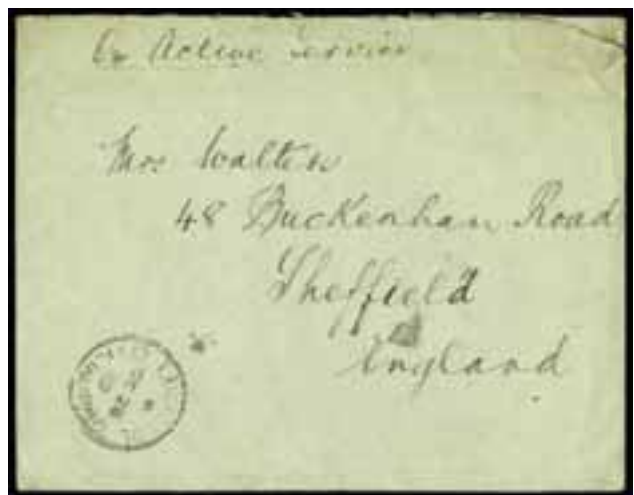 On Active Service
Mrs Walton
48 Buckenham Road
Sheffield
England